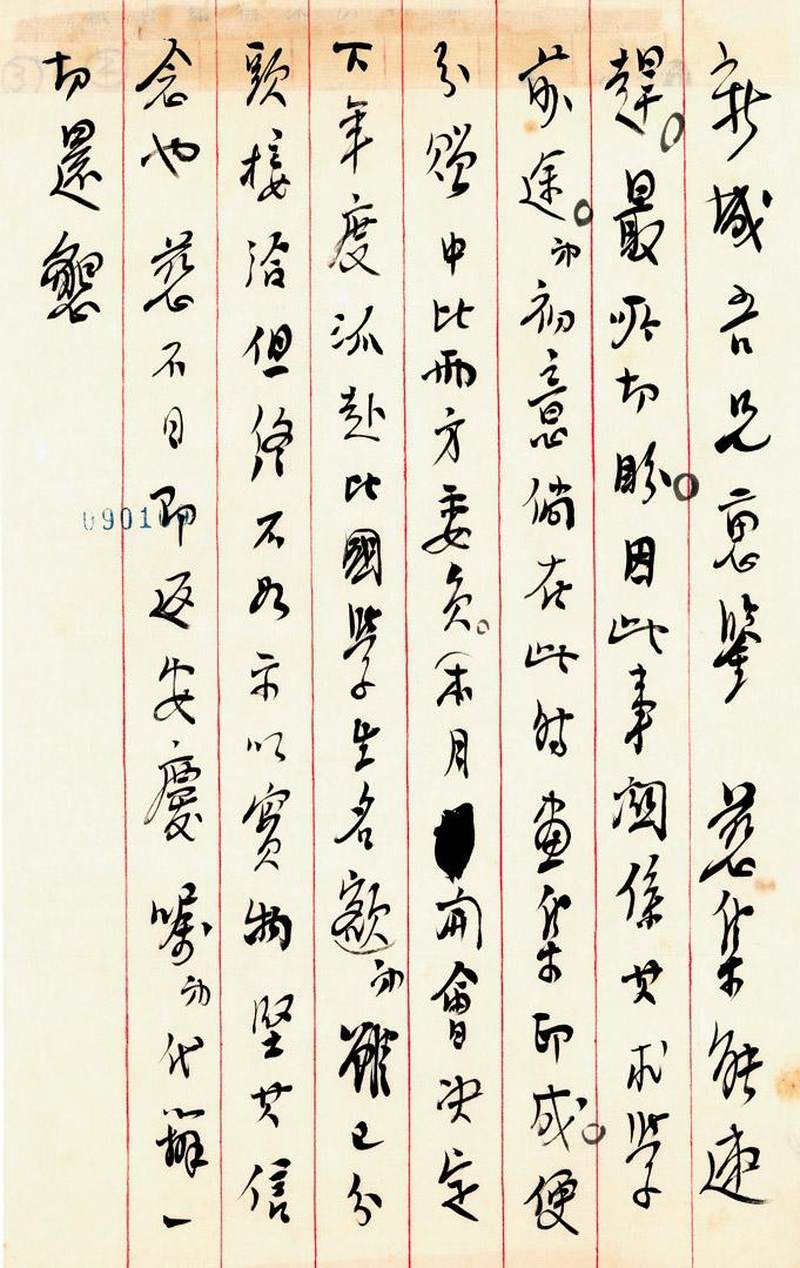 新城吾兄惠鑒　慈集能速
趕。最所切盼。因此事關係其求學
前途。弟初意倘在此時畫集印成。便
分贈中比兩方委員。(本月開會決定
下年度派赴比國學生名額)弟雖已分
頭接洽但終不如示以實物堅其信
念也　慈不日即返安慶囑弟代辦一
切還懇
0901